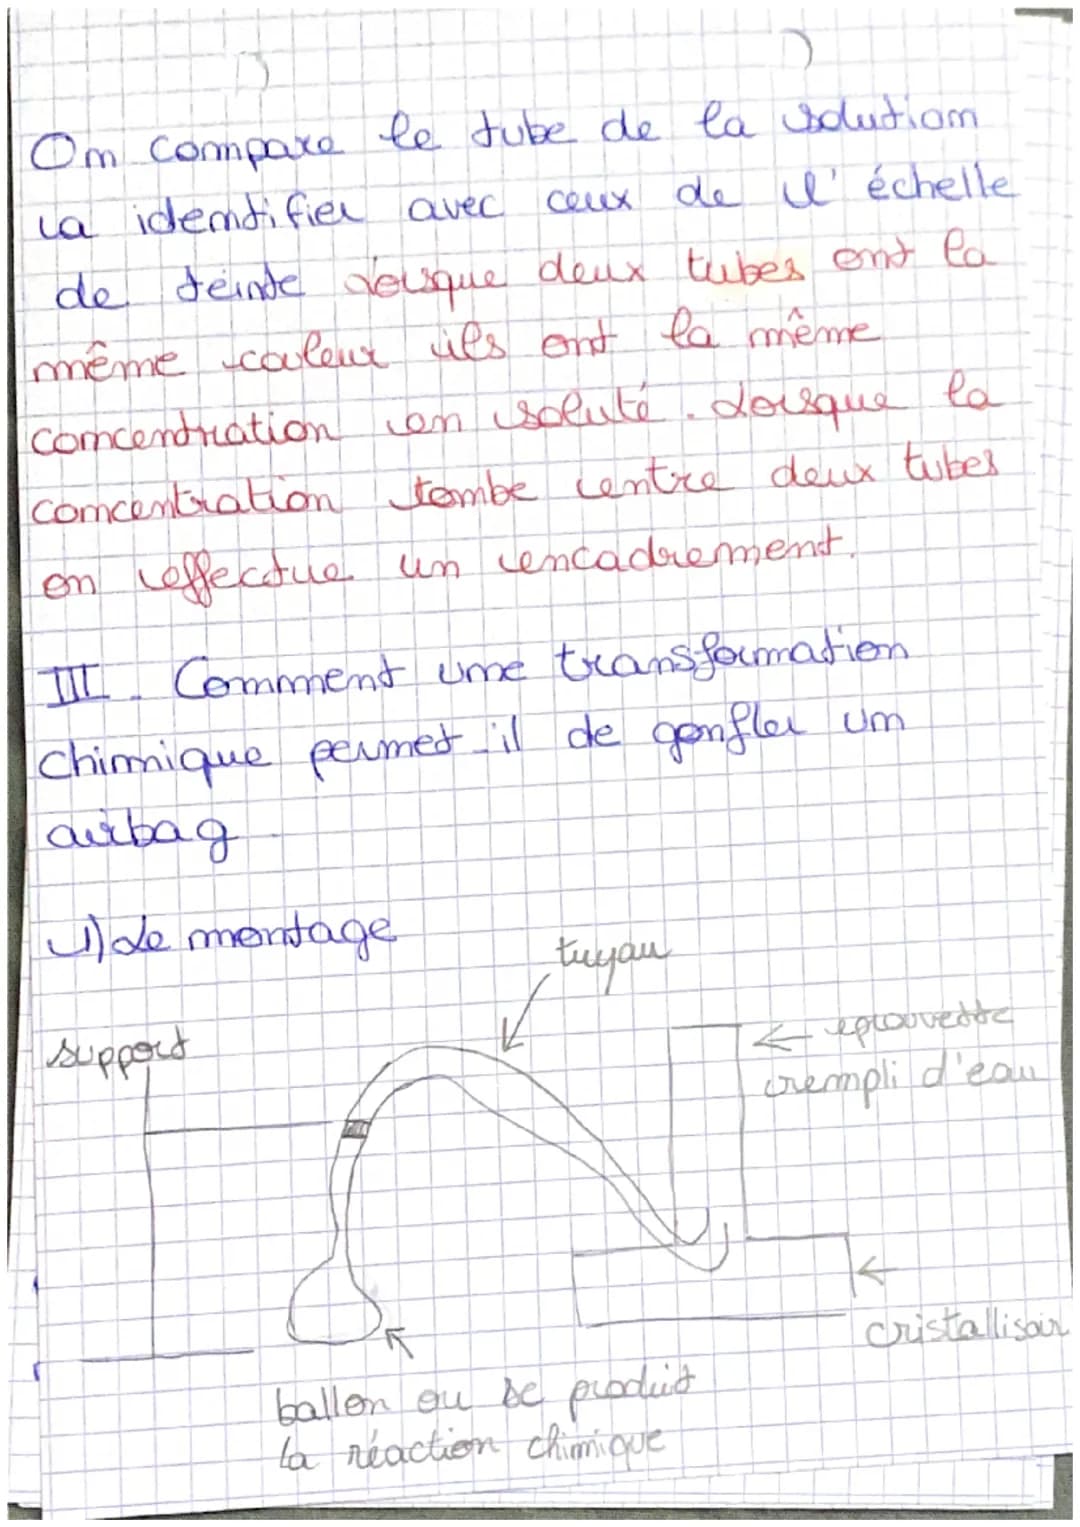 On compare le tube de la solution
a identifier avec ceux de l'échelle
de teinte lorsque deux tubes ont la
même couleur ils ont la même
concentration en soluté. Lorsque la
concentration tombe entre deux tubes
on effectue un encadrement.
III. Comment une transformation
chimique permet-il de gonfler un
airbag
1) Le montage
tuyau
support
eprouvette
rempli d'eau
cristallisoir
ballon ou se produit
la réaction chimique